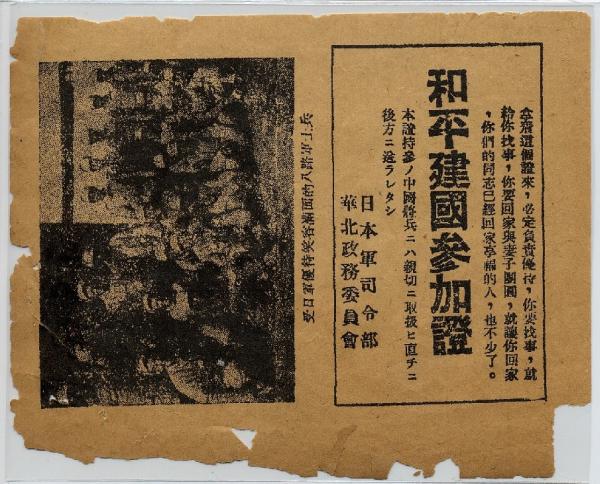 拿着這個證來，必定負責優待，你要找事，就
給你找事，你要回家與妻子團圓，就讓你回家
，你們的同志已經回家享福的人，也不少了。
和平建國參加證
本證持參ノ中國將兵ニハ親切ニ取扱ヒ直チニ
後方ニ送ラレタシ
日本軍司令部
華北政務委員會
受日軍優待笑容滿面的八路軍士兵